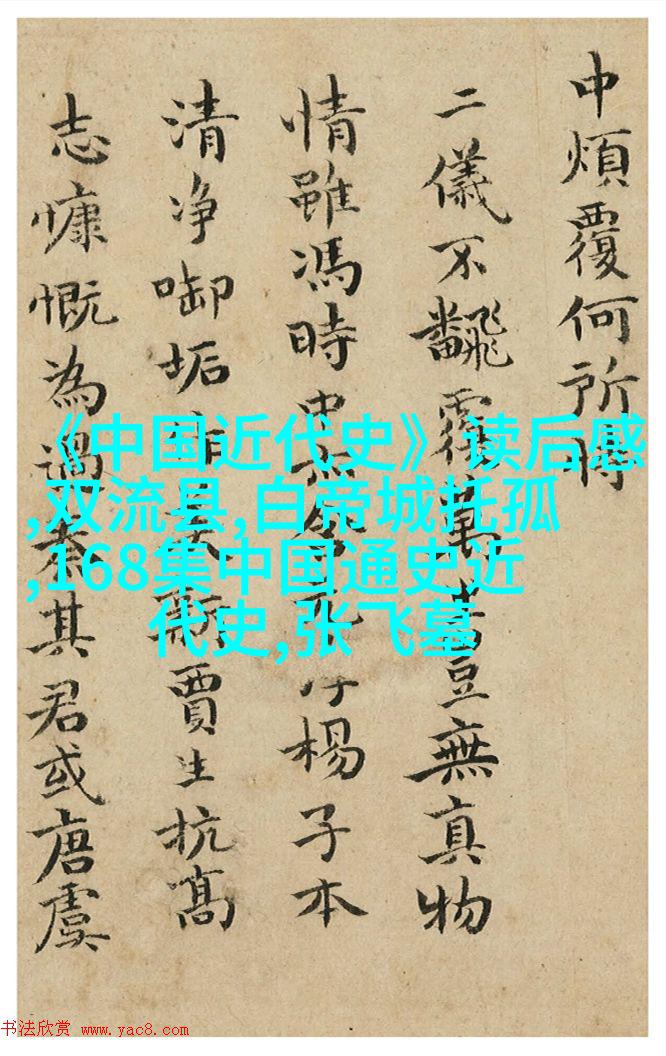 中煩覆何所時
二儀不飜覆萬豈無真物
情雖馮時楊子本
清净啣垢賈生抗高
志慷慨為過秦其君或唐虞
《中国近代史》读后感
,双流县,白帝城托孤
,168集中国通史近
代史,张飞墓
书法欣赏 www.yac8.com